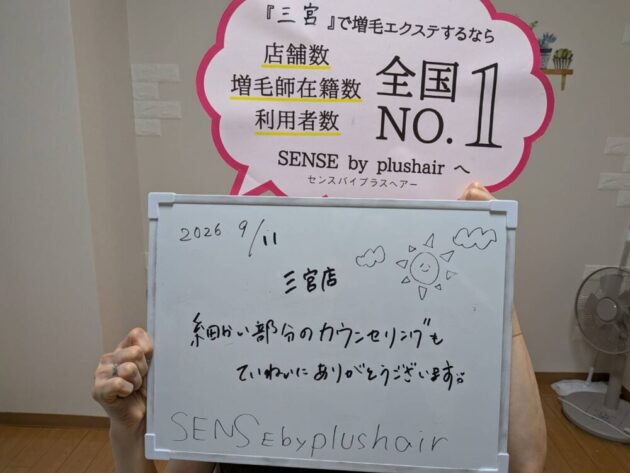 『三宮』で増毛エクステするなら
店舗数
増毛師在籍数
利用者数
全国
NO.1
SENSE by plushair へ
センスバイプラスヘアー
2026 9/11
三宮店
細かい部分のカウンセリングも
ていねいにありがとうございます。
SENSEbyplushair